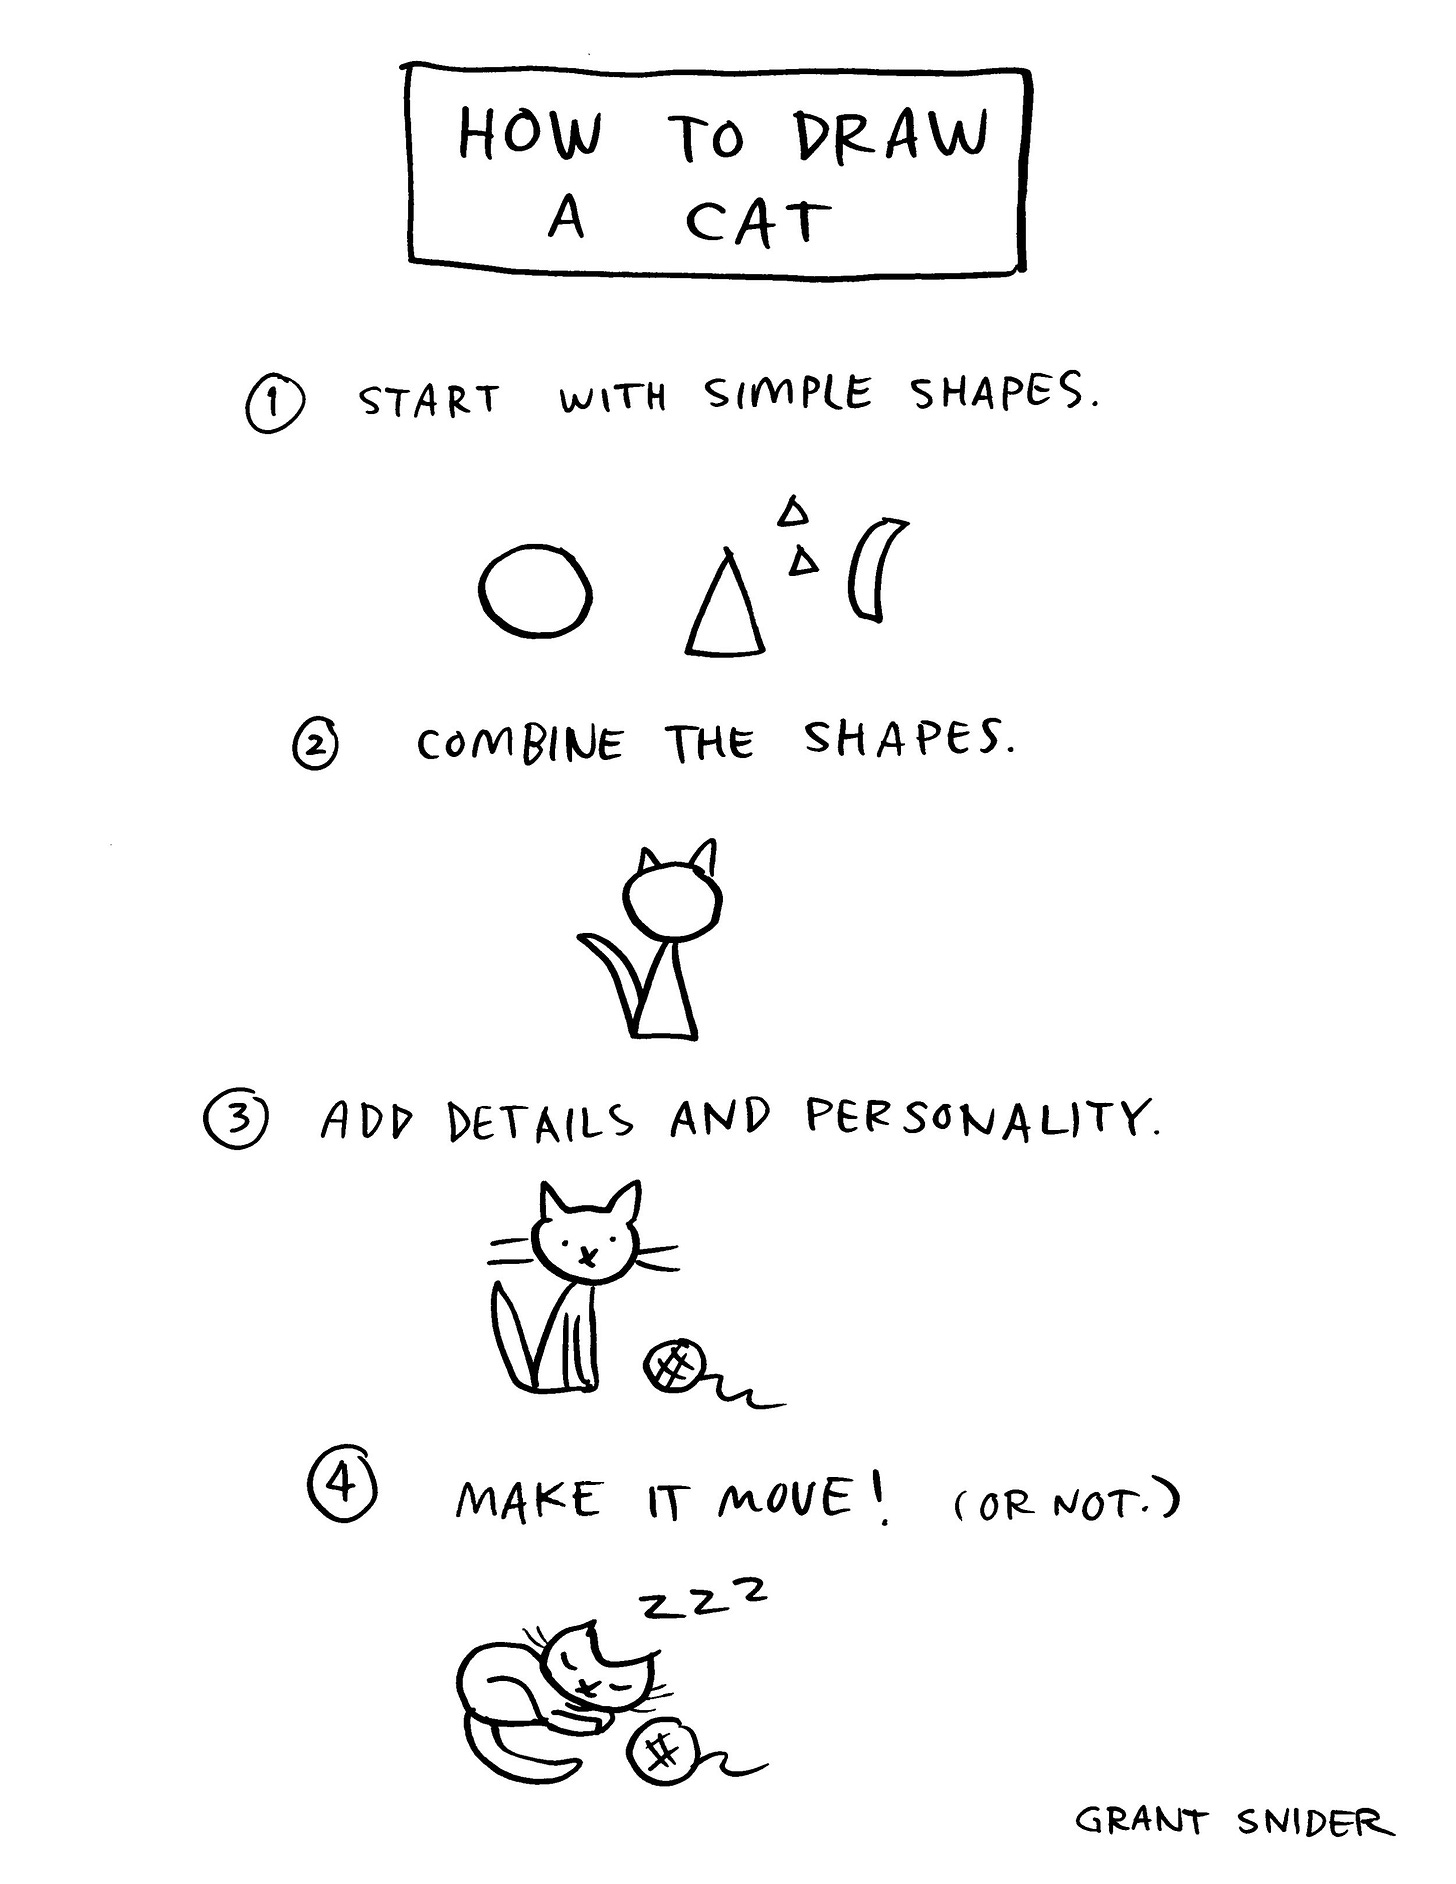 HOW TO DRAW
A CAT
1 START WITH SIMPLE SHAPES.
2 COMBINE THE SHAPES.
3 ADD DETAILS AND PERSONALITY.
4 MAKE IT MOVE! (OR NOT.)
ZZZ
GRANT SNIDER